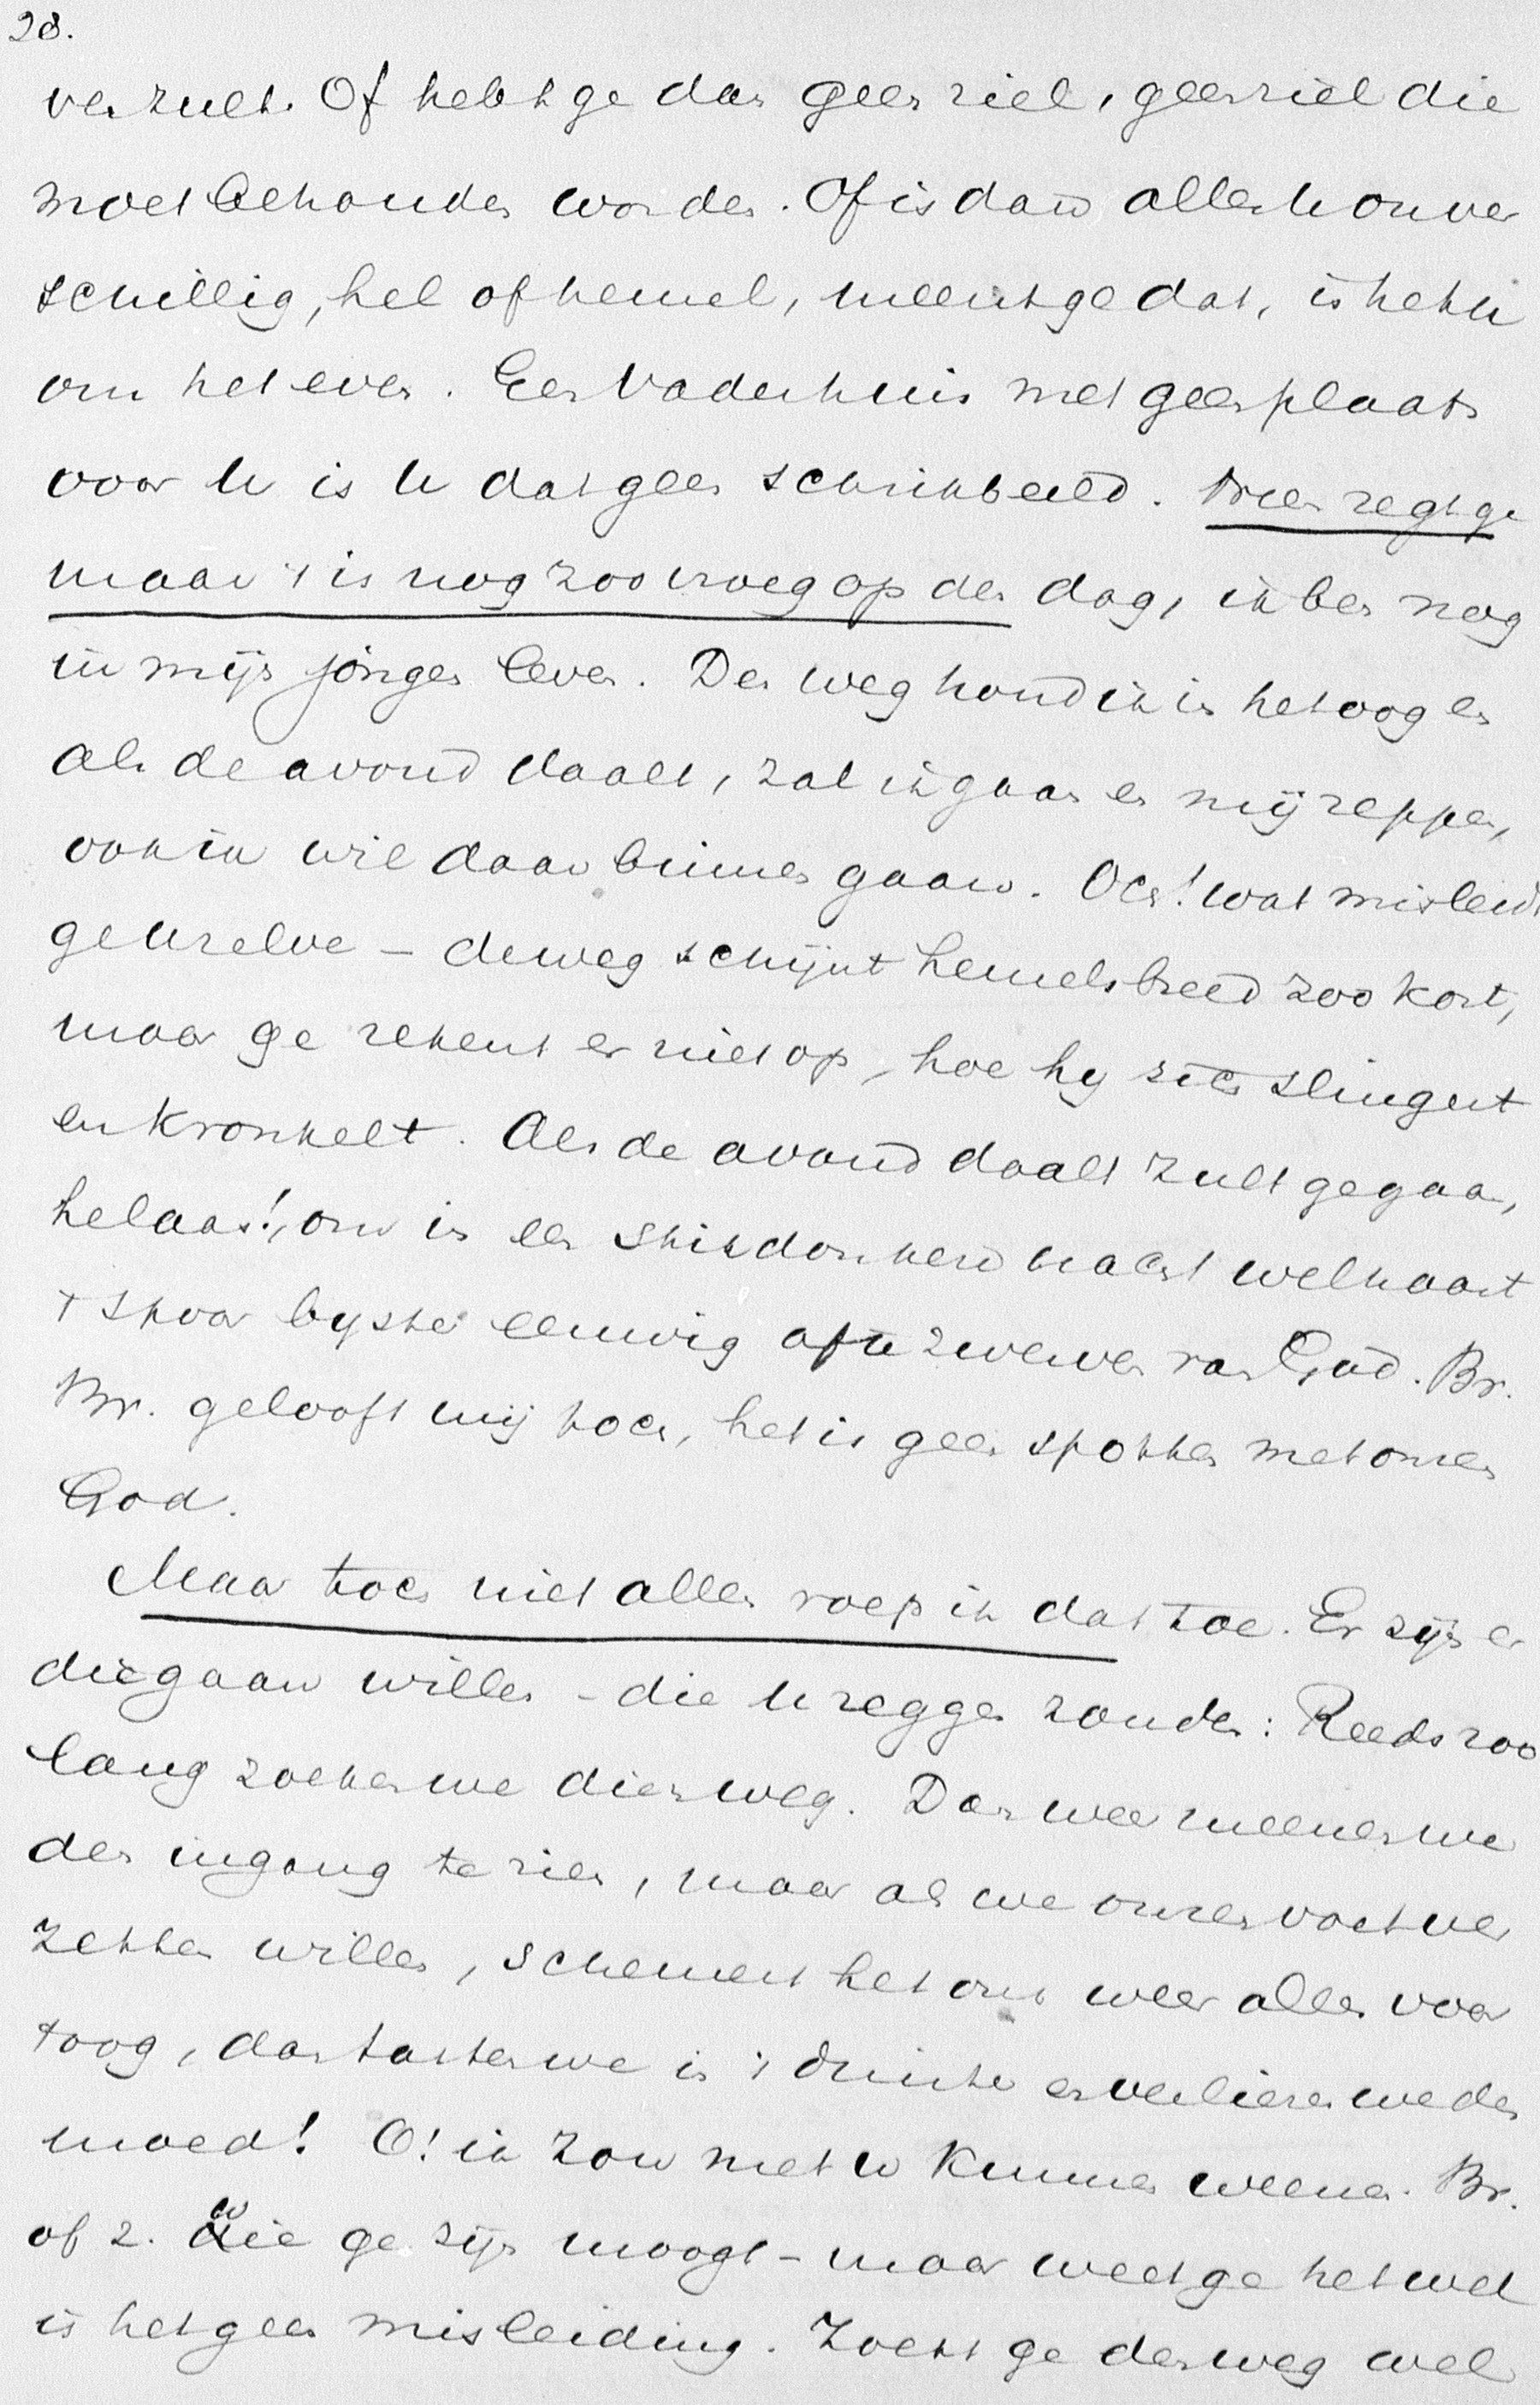 28.
ven zult. Of hebt ge dan geen ziel, geen ziel die
moet behouden worden. Of is dan alles U onver
schillig, hel of hemel, meent ge dat, is het u
om het even. Een Vaderhuis met geen plaats
voor U is U dat geen schrikbeeld. Neen zegt ge
maar 't is nog zoo vroeg op den dag, ik ben nog
in mijn jonge leven. Den weg houd ik in het oog en
als de avond daalt, zal ik gaan en mij reppen,
ook ik wil daar binnen gaan. Och! wat misleidt
ge U zelve - de weg schijnt hemelsbreed zoo kort,
maar ge rekent er niet op, hoe hy zich slingert
en kronkelt. Als de avond daalt zult ge gaan,
helaas!, om in een stikdonkeren nacht welhaast
't spoor byster eeuwig af te zwerven van God. Br.
Br. gelooft mij toch, het is geen spotten met onzen
God.
Maar toch niet allen roep ik dat toe. Er zijn er
die gaan willen - die U zeggen zouden: Reeds zoo
lang zoeken we dien weg. Dan weer meenen we
den ingang te zien, maar als we onzen voet ver
zetten willen, schemert het ons weer alles voor
't oog, dan tasten we in 't duister en verliezen we den
moed! O! ik zou met U kunnen weenen. Br.
of Z. wie ge zijn moogt - maar weet ge het wel
is het geen misleiding. Zoekt ge den weg wel